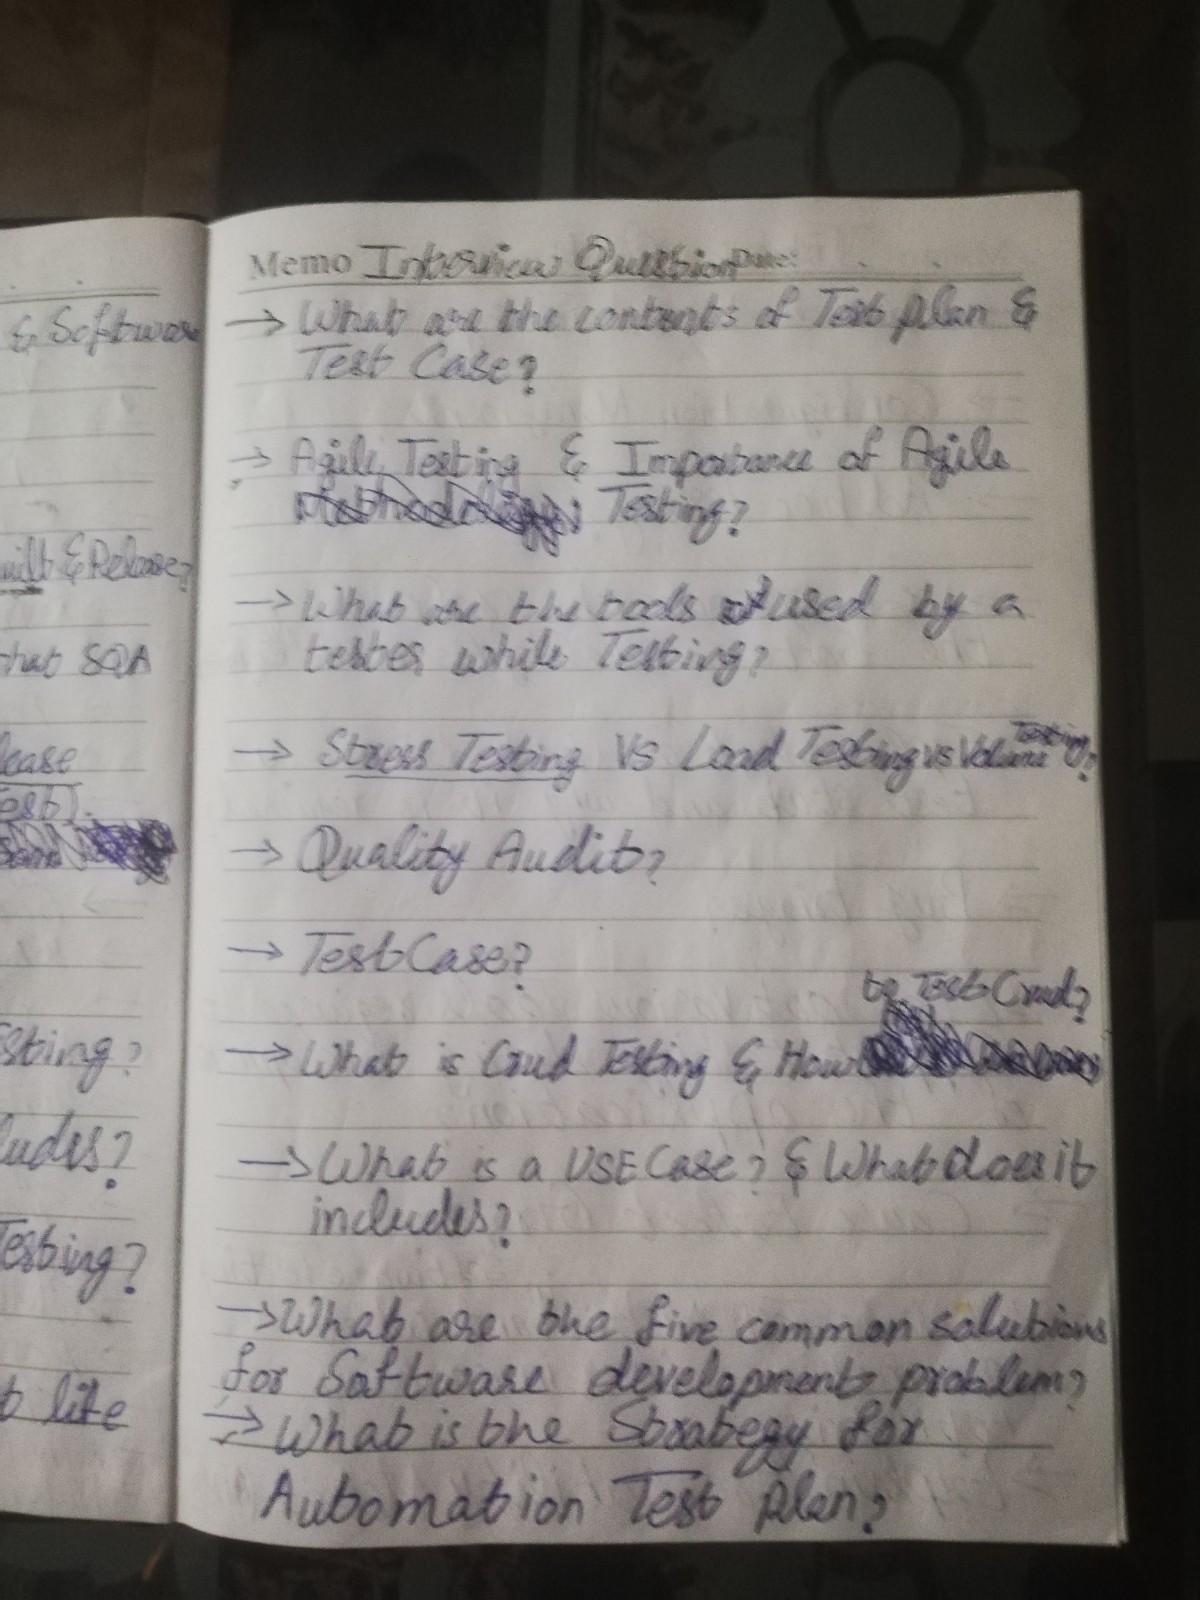 & Software
built & Release?
that SQA
lease
Test).
esting?
ludes?
Testing?
life
Memo Interview Question Date:
→ What are the contents of Test plan &
Test Case?
→ Agile Testing & Importance of Agile
Testing?
→ What are the tools used by a
tester while Testing?
→ Stress Testing VS Load Testing vs Volume Testing?
→ Quality Audit?
→ Test Case?
to Test Crud?
→ What is Crud Testing & How
→ What is a USE Case? & What does it
includes?
→ What are the five common solutions
for Software development problem?
→ What is the Strategy for
Automation Test plan?